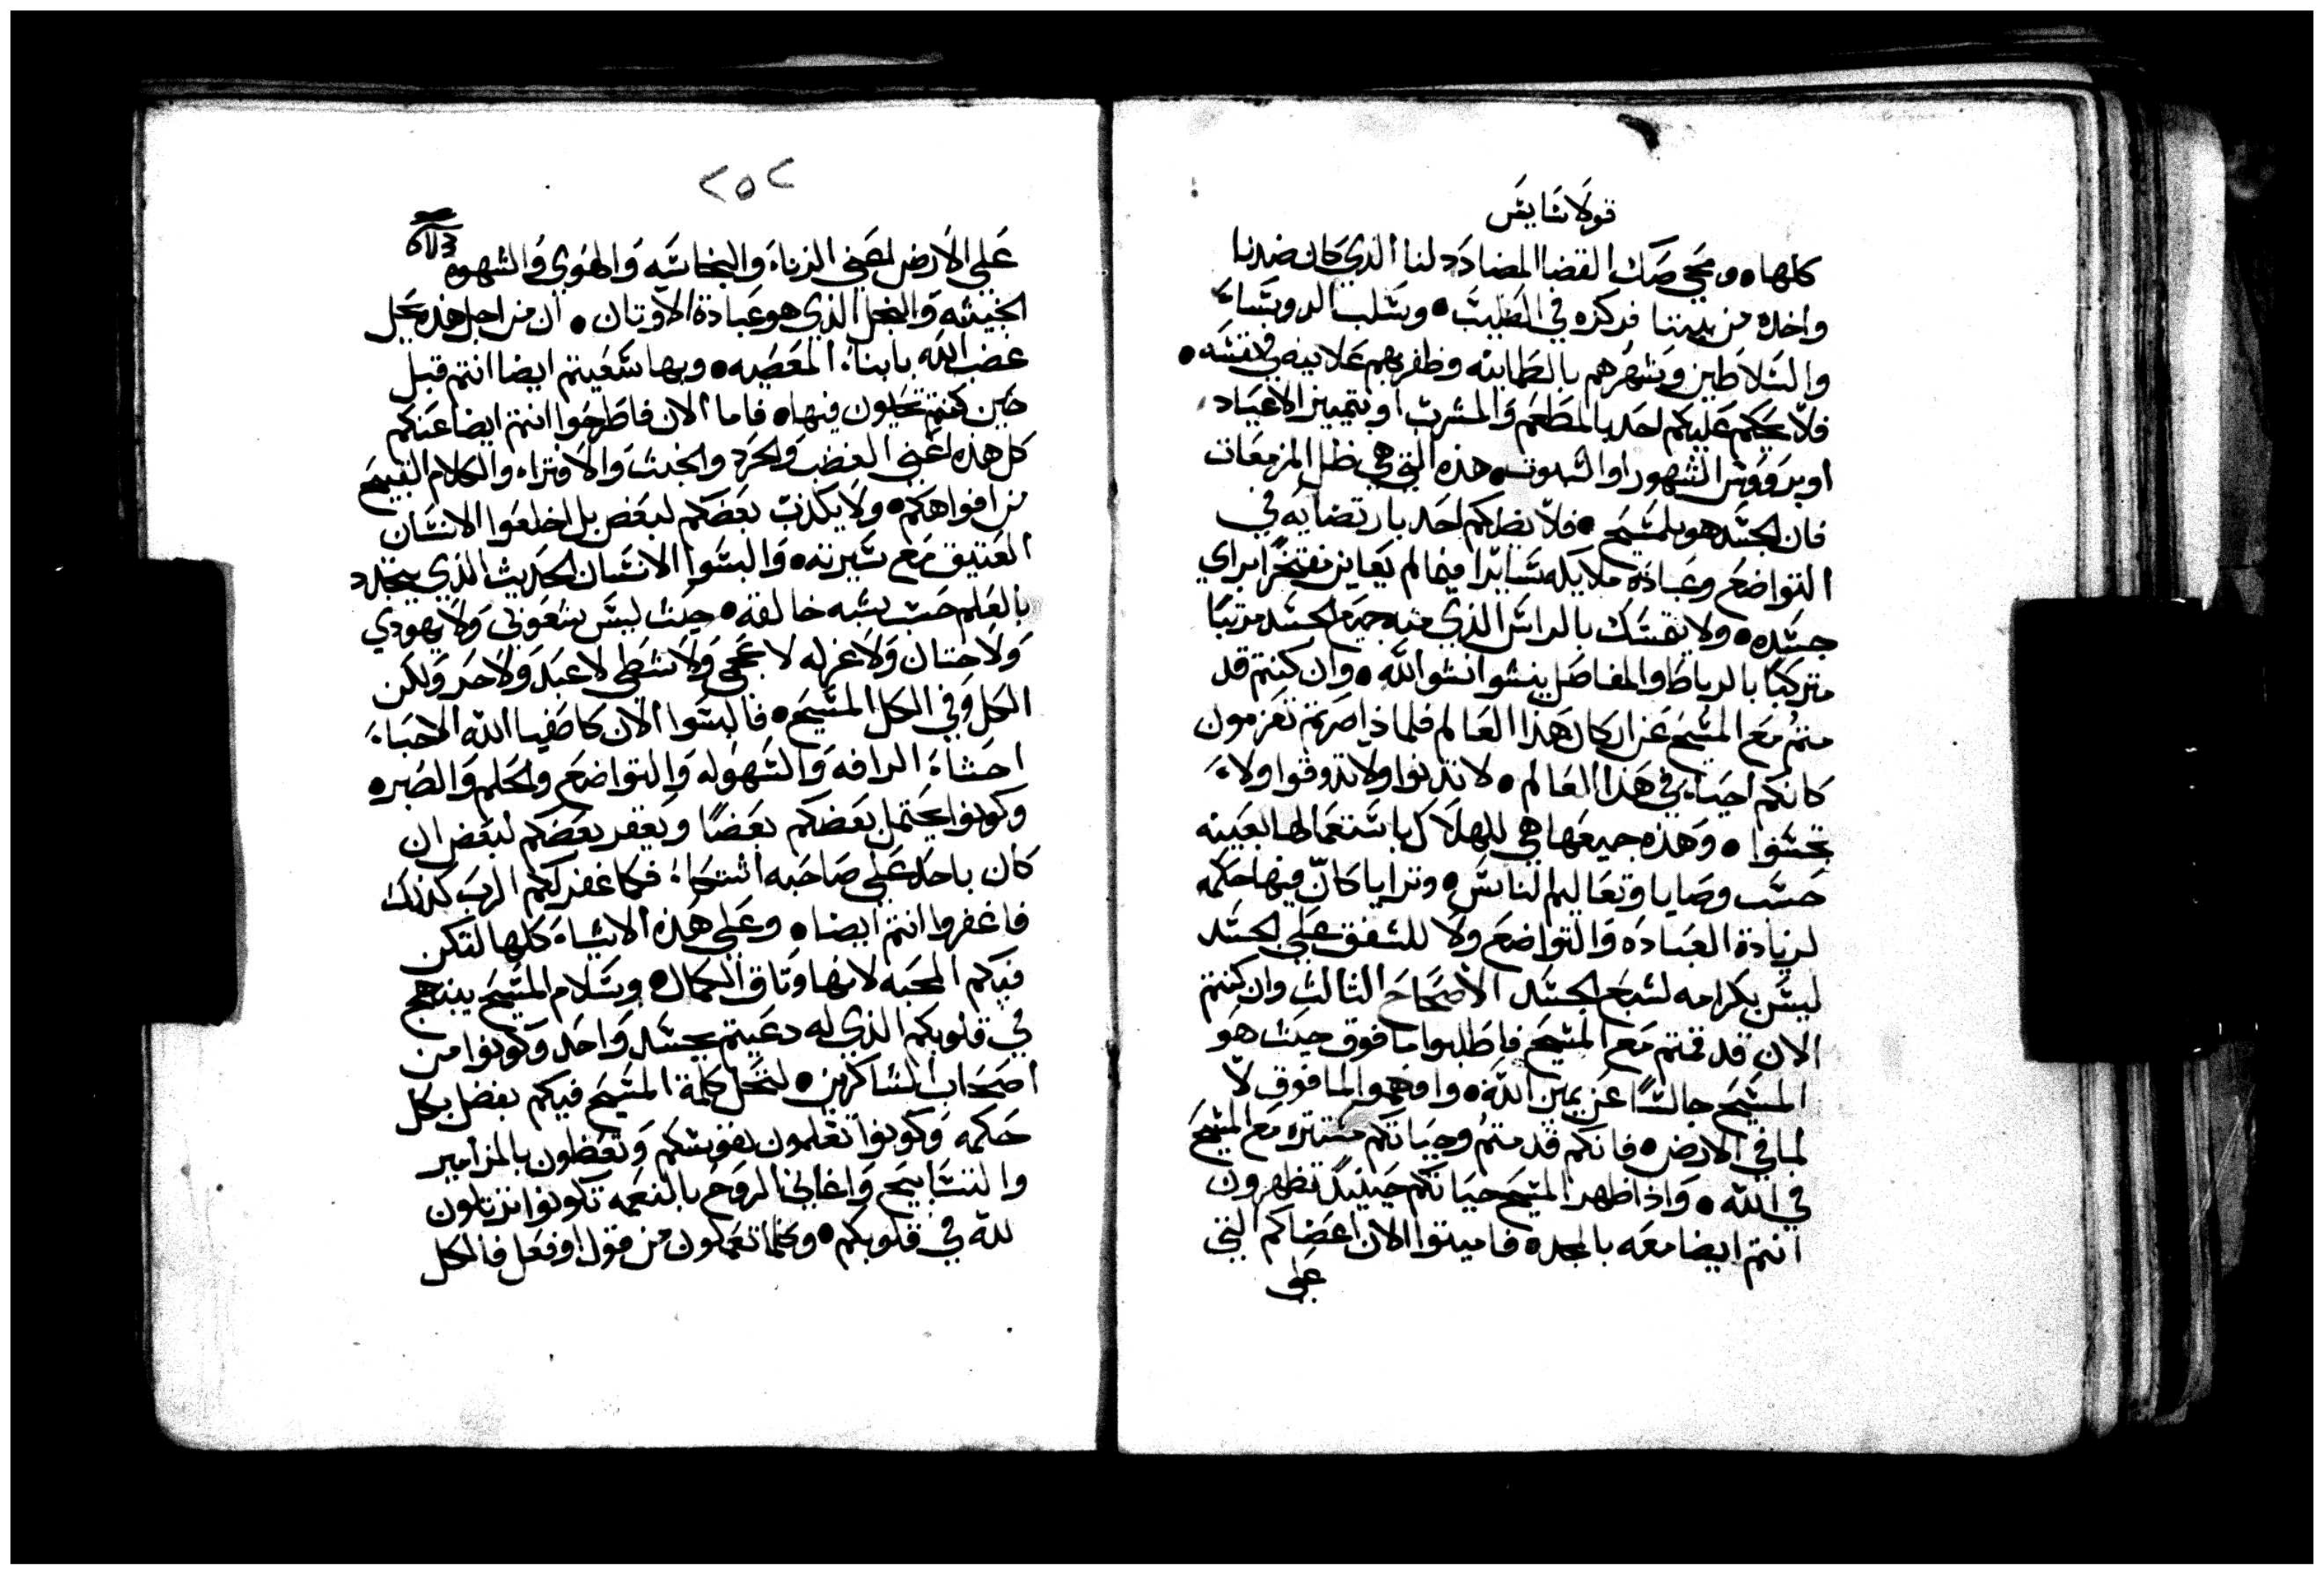 قولاسايس
كلها ومحي صك القضا المضادد لنا الذي كان ضدنا
واخده من بيننا فركزه في الصليب وسلب الروسآء
والسلاطين وشهرهم بالطمانينه وظفر بهم علانيه في نفسه
فلا يحكم عليكم احد بالمطعم والمشرب او بتمييز الاعياد
او برووس الشهور او السبوت هذه التي هي ظل المزمعات
فان الجسد هو بلمسيح فلا يضلكم احد بارتضايه في
التواضع وعبادة ملايكه سايرا فيما لم يعاين مفتخرا براي
جسده ولا يتمسك بالراس الذي منه جميع الجسد مرتبا
متركبا بالرباط والمفاصل ينشوا نشو الله وان كنتم قد
متم مع المسيح عن اركان هذا العالم فلماذا صرتم تعزمون
كانكم احياء في هذا العالم لا تدنوا ولا تدوقوا ولا
تجسوا وهذه جميعها هي للهلاك باستعمالها بعينه
حسب وصايا وتعاليم الناس وتترايا كان فيها حكمه
لزيادة العباده والتواضع ولا للشفق علي الجسد
ليس بكرامه لشبع الجسد الاصحاح التالت وان كنتم
الان قد قمتم مع المسيح فاطلبوا ما فوق حيث هو
المسيح جالسا عن يمين الله وافهموا لما فوق لا
لما في الارض فانكم قد متم وحياتكم مستتره مع المسيح
في الله واذا ظهر المسيح حياتكم حينيد تظهرون
انتم ايضا معه بالمجد فاميتوا الان اعضاكم التي
علي
٢٥٢
علي الارض اعني الزناء والنجاسه والهوي والشهوه
الخبيثه والبخل الذي هو عبادة الاوتان ان من اجل هذه يحل
غضب الله بابناء المعصيه وبها سعيتم ايضا انتم قبل
حين كنتم تحيون فيها فاما الان فاطرحوا انتم ايضا عنكم
كل هذه اعني الغضب والحرد والخبث والافتراء والكلام القبيح
من افواهكم ولا يكذب بعضكم لبعض بل اخلعوا الانسان
العتيق مع سيرته والبسوا الانسان الحديث الذي يتجدد
بالعلم حسب شبه خالقه حيث ليس شعوبي ولا يهودي
ولا ختان ولا غرله لا عجمي ولا نشطي لا عبد ولا حر ولكن
الكل وفي الكل المسيح فالبسوا الان كاصفيا الله الاحباء
احشاء الرافه والسهوله والتواضع والحلم والصبر
وكونوا يحتمل بعضكم بعضا ويغفر بعضكم لبعض ان
كان باحد علي صاحبه اشتكاء فكما غفر لكم الرب كذلك
فاغفروا انتم ايضا وعلي هذه الاشياء كلها لتكن
فيكم المحبه لانها وتاق الكمال وسلام المسيح يبتهج
في قلوبكم الذي له دعيتم بجسد واحد وكونوا من
اصحاب الشاكرين لتحل كلمة المسيح فيكم بفضل بكل
حكمه وكونوا تعلمون نفوسكم وتعظون بالمزامير
والتسابيح واغاني الروح بالنعمه تكونوا ترتلون
لله في قلوبكم وكلما تعملون من قول او فعل فالكل